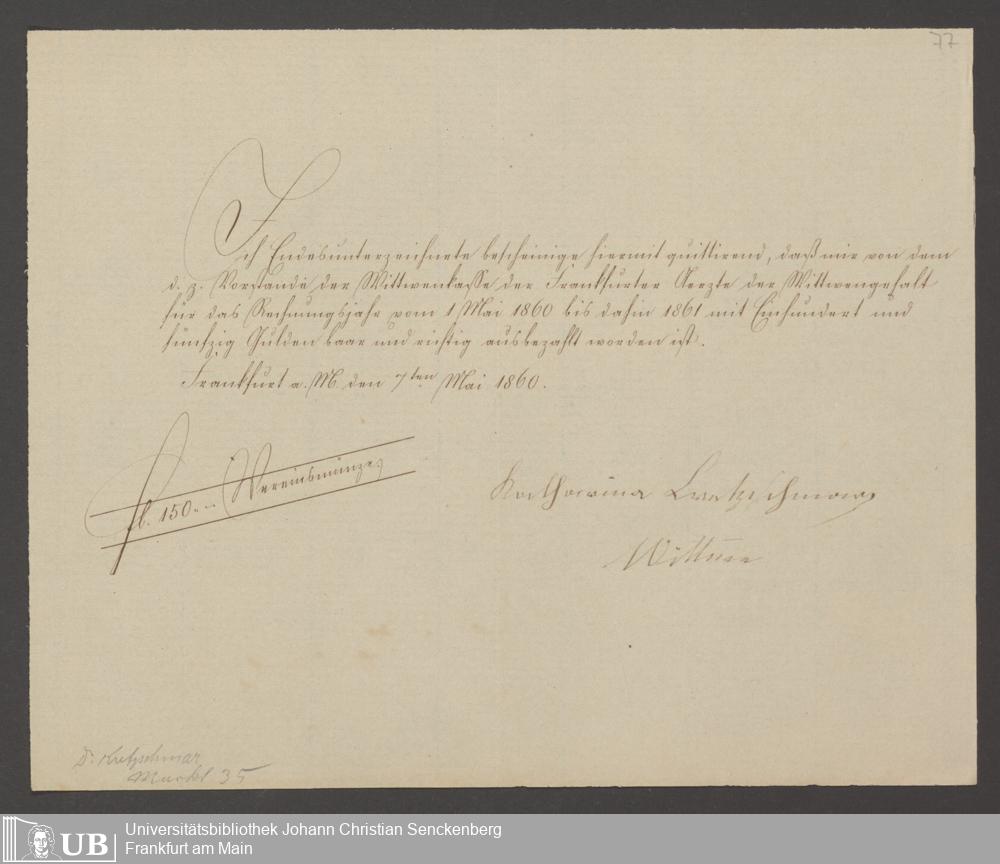 77
Ich Endesunterzeichnete bescheinige hiermit quittirend, daß mir von dem
d. z. Vorstande der Wittwenkasse der Frankfurter Aerzte der Wittwengehalt
für das Rechnungsjahr vom 1 Mai 1860 bis dahin 1861 mit Einhundert und
fünfzig Gulden baar und richtig ausbezahlt worden ist.
Frankfurt a. M. den 7ten Mai 1860.
fl. 150.- (Vereinsmünze)
Katharina Kretzschmar
Wittwe
Dr Kretzschmar
Markt 35
UB
Universitätsbibliothek Johann Christian Senckenberg
Frankfurt am Main